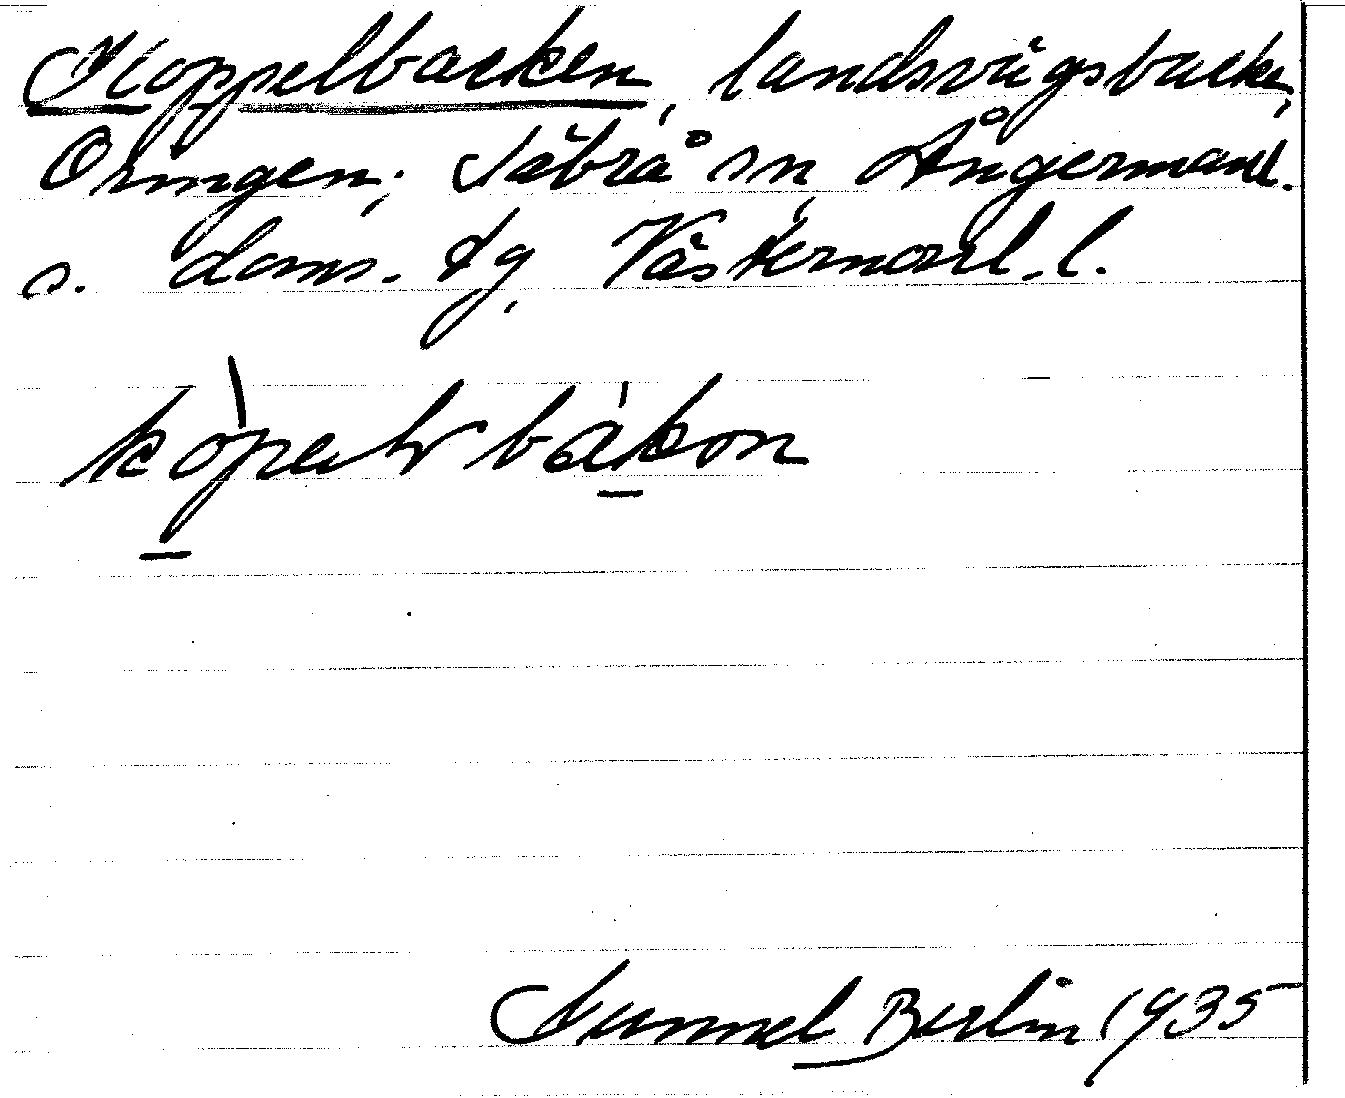 Koppelbacken, landsvägsbacke,
Oringen, Säbrå sn, Ångermanl.
s. doms. tg, Västernorrl. l.
kòpεlbákɔn
Gunnel Berlin 1935